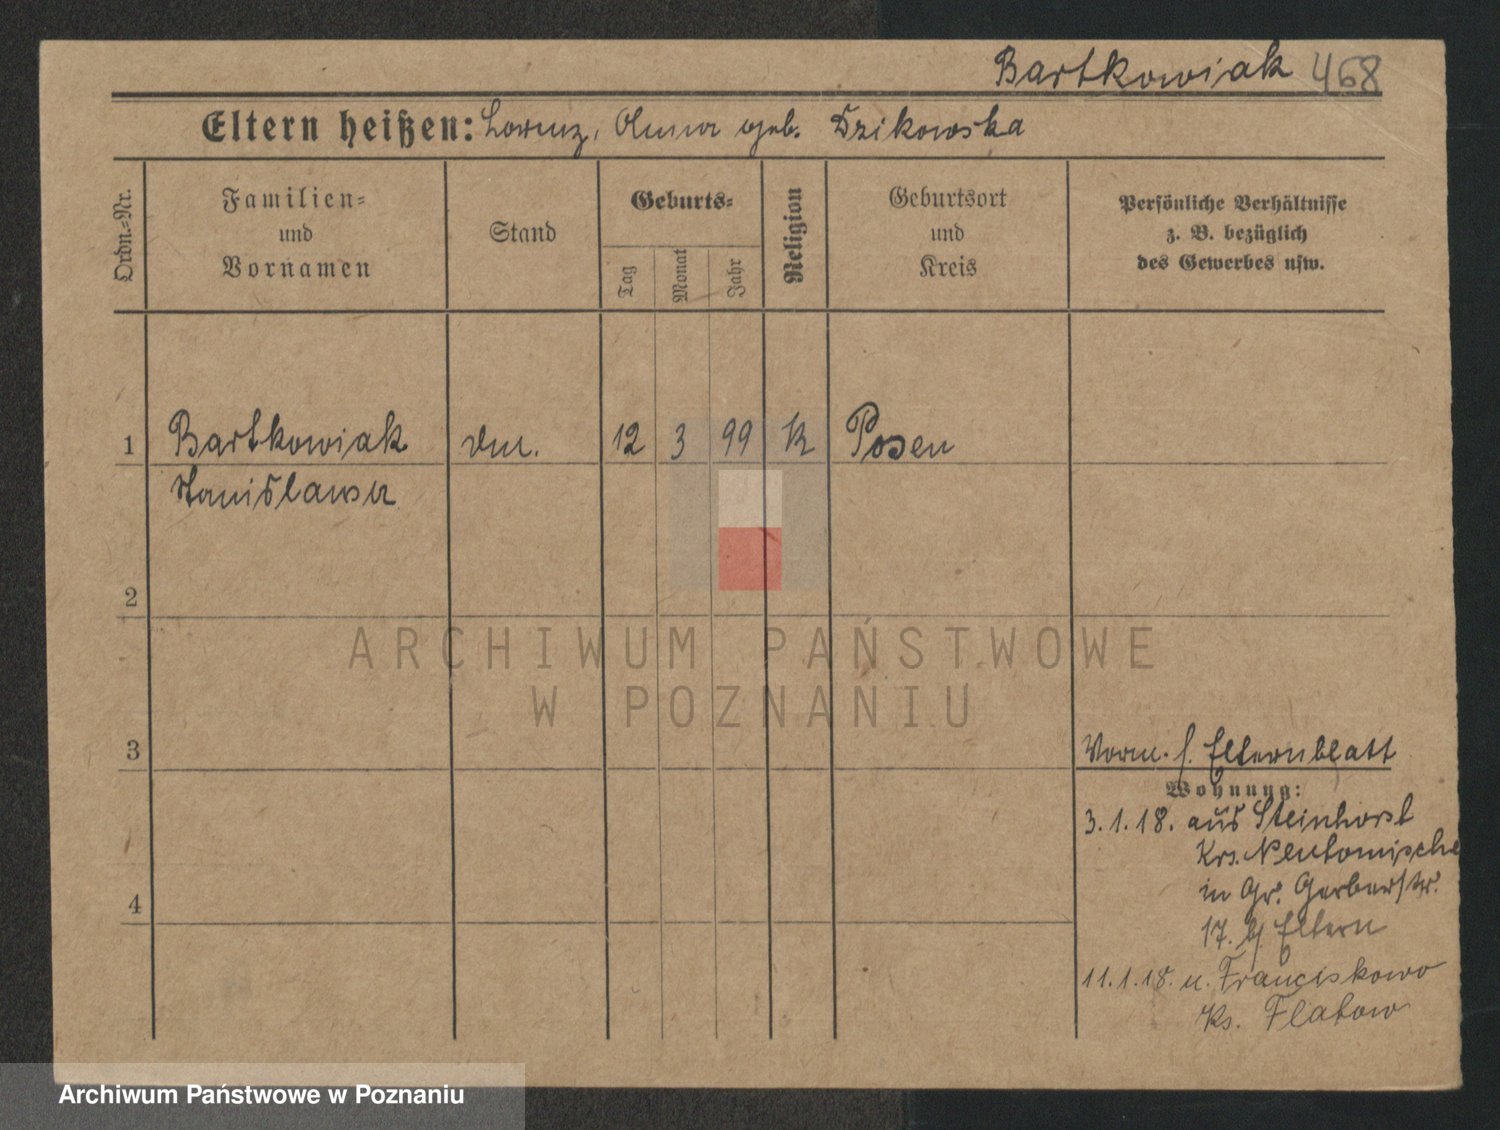 Bartkowiak 468
Eltern heißen: Lorenz, Anna geb. Dzikowska
Ordn.-Nr.
Familien-
und
Vornamen
Stand
Geburts-
Tag
Monat
Jahr
Religion
Geburtsort
und
Kreis
Persönliche Verhältnisse
z. B. bezüglich
des Gewerbes usw.
1 Bartkowiak 12 3 99 k Posen
Stanislawa
2
3
Vorm. s. Elternblatt
Wohnung:
3.1.18. aus Steinhorst
Krs. Neutomische
in Gr. Gerberstr.
4
17. b/ Eltern
11.1.18. n. Franciskowo
Ks. Flatow
ARCHIWUM PAŃSTWOWE
W POZNANIU
Archiwum Państwowe w Poznaniu